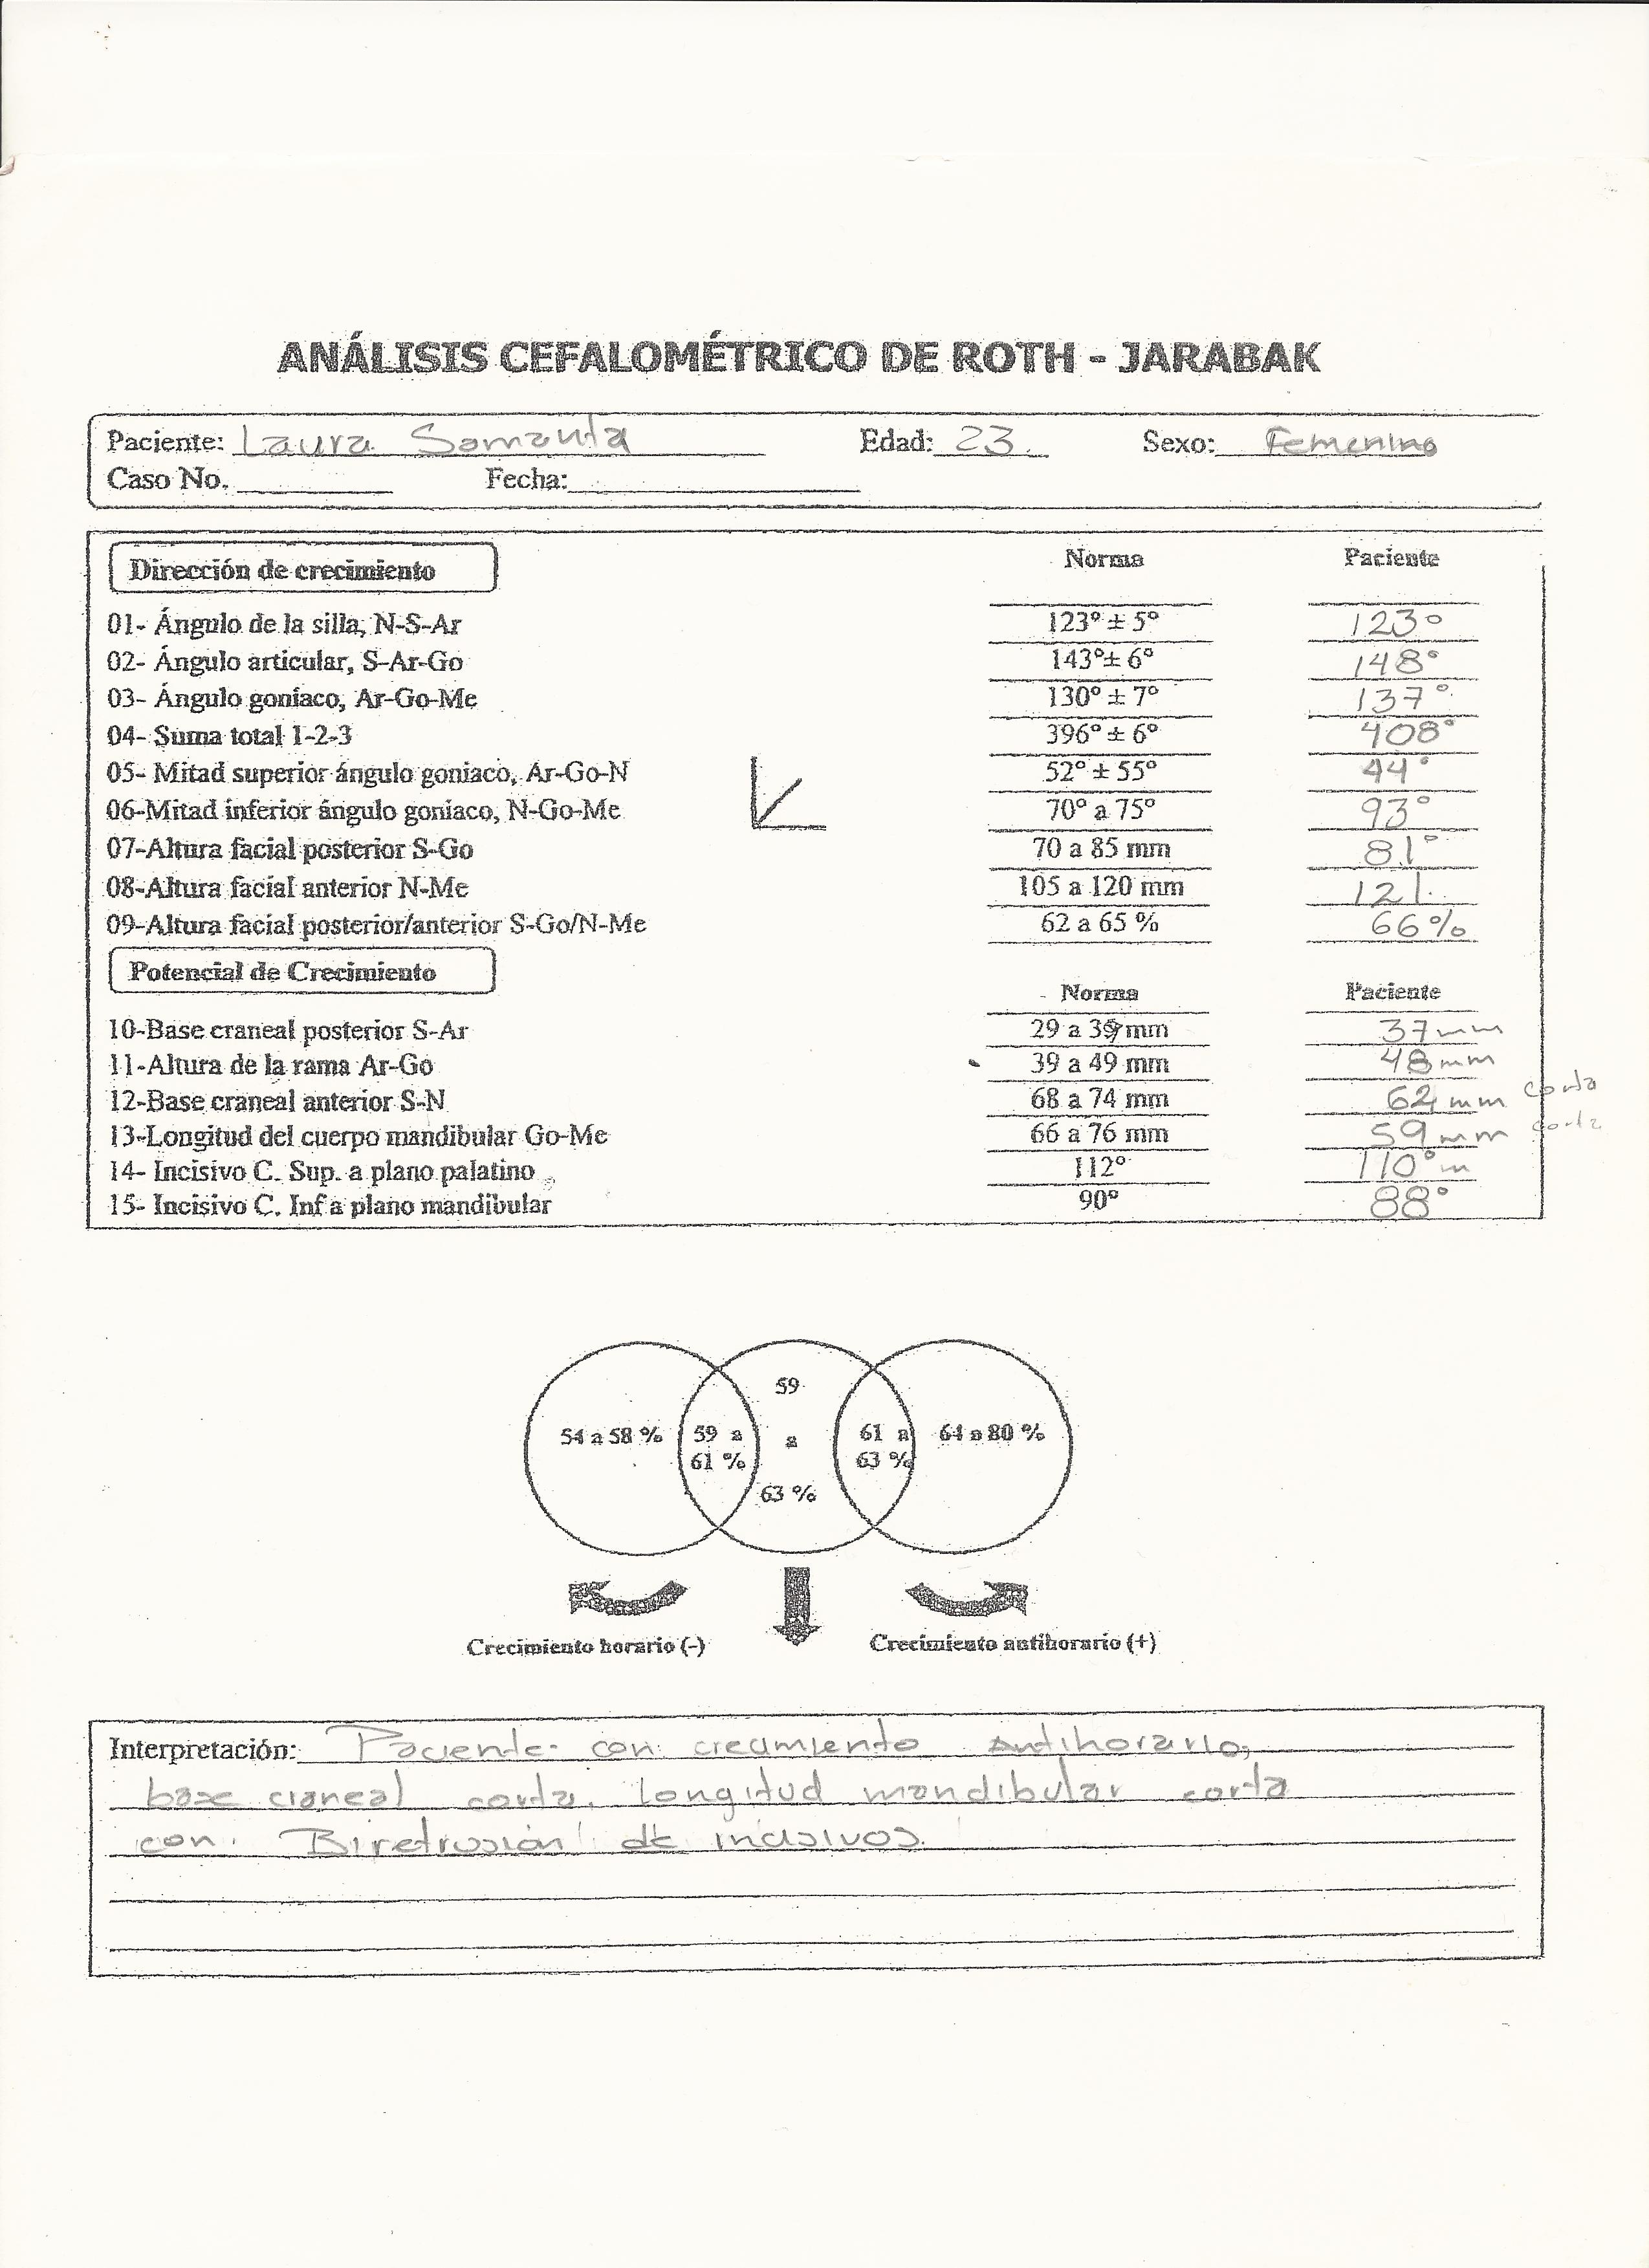 ANÁLISIS CEFALOMÉTRICO DE ROTH - JARABAK
Paciente: Laura Samanta Edad: 23 Sexo: Femenino
Caso No. Fecha:
Dirección de crecimiento Norma Paciente
01- Ángulo de la silla, N-S-Ar 123º ± 5º 123°
02- Ángulo articular, S-Ar-Go 143º± 6º 148°
03- Ángulo goníaco, Ar-Go-Me 130º ± 7º 137°
04- Suma total 1-2-3 396º ± 6º 408°
05- Mitad superior ángulo goniaco, Ar-Go-N 52º ± 55º 44°
06-Mitad inferior ángulo goniaco, N-Go-Me 70º a 75º 93°
07-Altura facial posterior S-Go 70 a 85 mm 81°
08-Altura facial anterior N-Me 105 a 120 mm 121.
09-Altura facial posterior/anterior S-Go/N-Me 62 a 65 % 66%
Potencial de Crecimiento
Norma Paciente
10-Base craneal posterior S-Ar 29 a 39 mm 37mm
11-Altura de la rama Ar-Go 39 a 49 mm 48mm
12-Base craneal anterior S-N 68 a 74 mm 62mm corta
13-Longitud del cuerpo mandibular Go-Me 66 a 76 mm 59mm corta
14- Incisivo C. Sup. a plano palatino 112º 110°m
15- Incisivo C. Inf a plano mandibular 90º 88°
59
54 a 58 % 59 a a 61 a 64 a 80 %
61 % 63 %
63 %
Crecimiento horario (-) Crecimiento antihorario (+)
Interpretación: Paciente con crecimiento antihorario,
base craneal corta. longitud mandibular corta
con Biretrusión de incisivos.